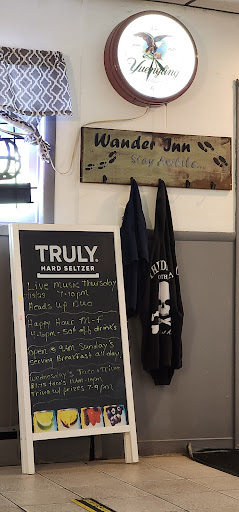 Yuengling
Wander Inn
Stay Awhile...
TRULY
HARD SELTZER
Live Music Thursday
7-10pm
Heads up Duo
Happy Hour M-F
4-6pm - 50¢ off drink's
open @ 9am Sunday's
serving Breakfast all day.
Wednesday's Taco + Trivia
trivia w/ prizes 7-9pm
TRULY